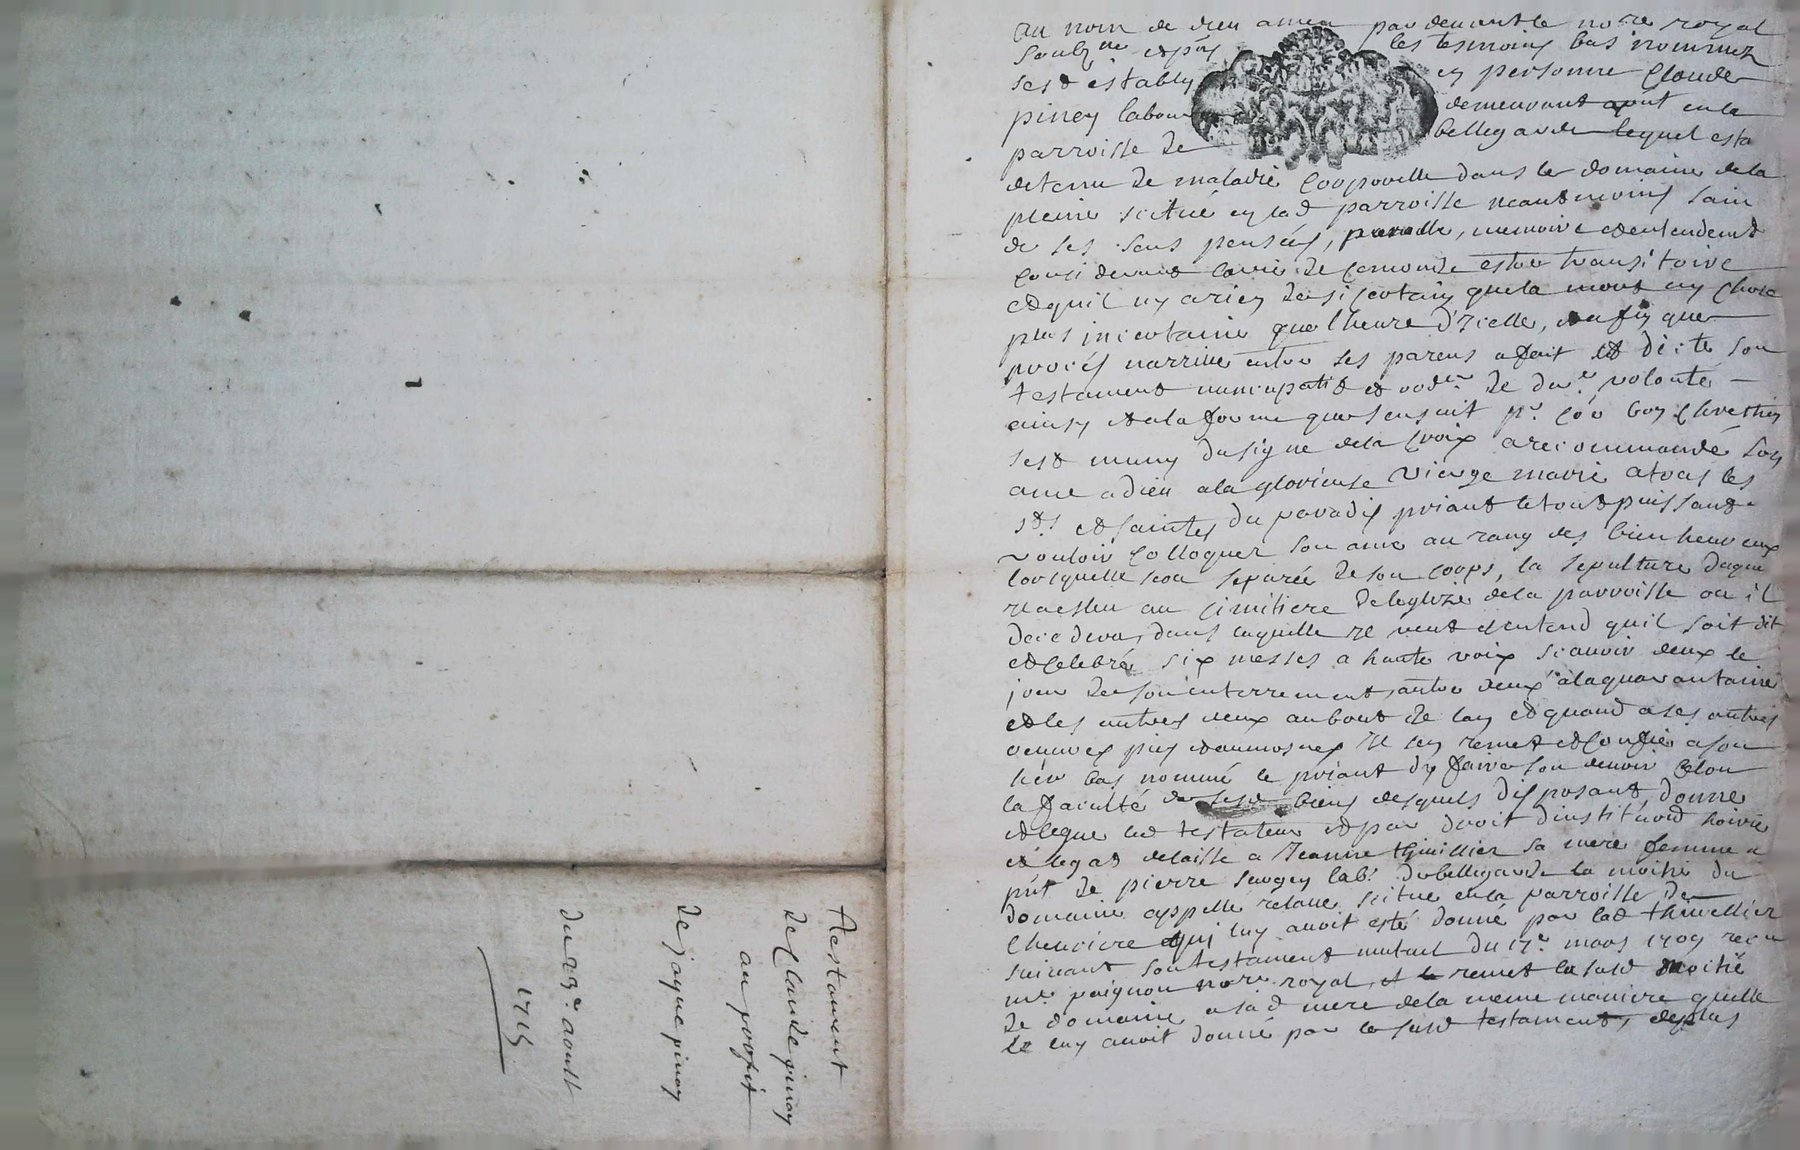 au nom de dieu amen par devant le no.re royal
soubz.ne et pns les tesmoins bas nommez
sest estably en personne Claude
piney labour demeurant apnt en la
parroisse de bellegarde lequel esta
detenu de maladie corporelle dans le domaine de la
pleine scitué en lad parroisse neantmoins sain
de ses sens pensées, parolle, memoire et entendemt
considerant la vie de ce monde estre transitoire
et quil ny a rien de si certain que la mort ny chose
plus incertaine que lheure d'icelle, et afin que
procés narrive entre ses parens a fait et dicte son
testament nuncupatif et ord.re de der.e volonté
ainsy et a la forme que sensuit p.r co.e bon chrestien
sest muny du signe de la Croix a recommandé son
ame a dieu a la glorieuse vierge marie a tous les
sts et saintes du paradis priant le tout puissant
vouloir colloquer son ame au rang des bien heureux
lorsquelle sera separée de son corps, la sepulture duquel
il a esleu au cimitiere de leglize de la parroisse ou il
decedera, dans laquelle il veut et entend quil soit dit
et celebré six messes a haute voix scavoir deux le
jour de son enterrement, autre deux a la quarantaine
et les autres deux au bout de lan et quand a ses autres
oeuvres pies et aumosnes il sen remet et confie a son
hér bas nommé le priant dy faire son devoir selon
la faculté de sesd biens desquels disposant donne
et legue led testateur et par droit dinstitu.on d'hoirie
et legat delaisse a Jeanne thivillier sa mere femme a
pnt de pierre saugey lab.r de bellegarde la moitié du
domaine appellé relave scitué en la parroisse de
lheuriere qui luy avoit esté donné par lad thevellier
suivant son testament mutuel du 17.e mars 1709 receu
m.e poignon no.re royal, et remet la susd moitié
de domaine a sad mere de la meme maniere quelle
le luy avoit donné par le susd testament, de plus
Testament
de Claude pinay
au profit
de jaque pinay
du 23.e aoust
1715